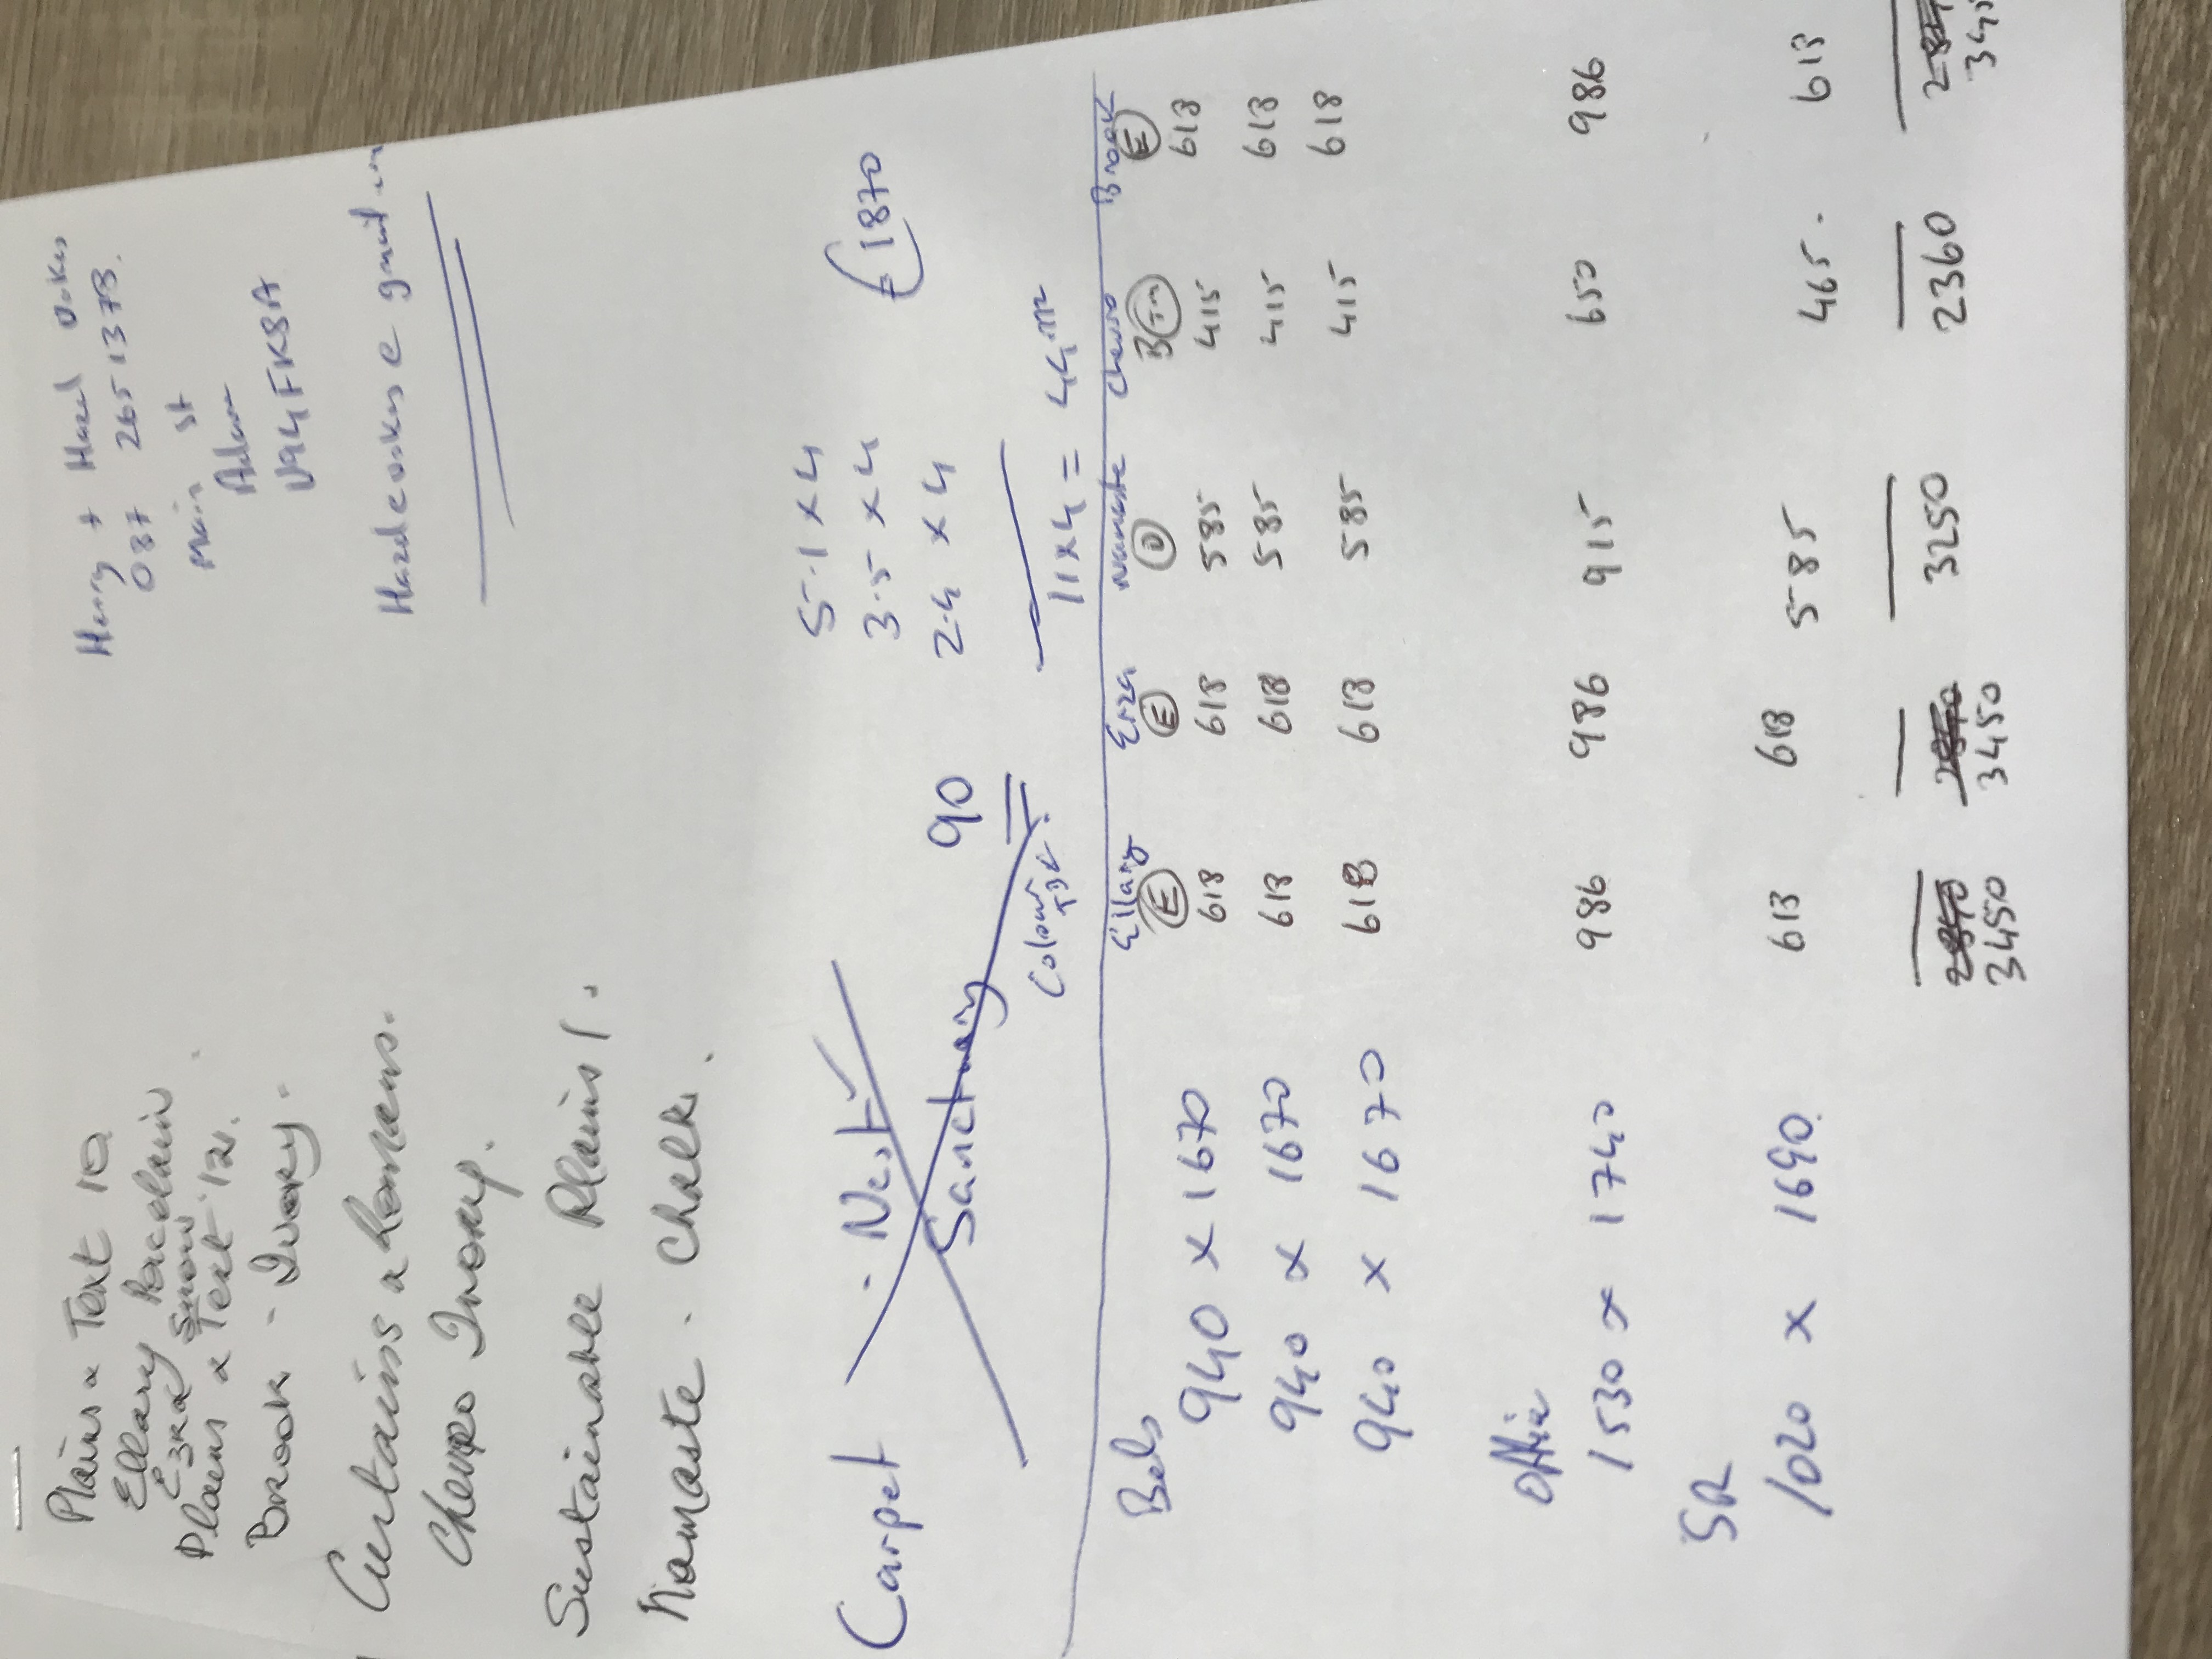 Plains & Text 10
Ellary Porcelain
Ezra Snow
Plains & Text 12.
Brook - Ivory.
Curtains & Romans.
Chempo Ivory.
Sustainable Plains 1.
Namaste - Chalk.
Henry + Hazel Oakes
087 2651373.
Main St
Adare
V94FK8A
Hazeloakes e gmail
Carpet - Nest ✓
Sanctuary 90
Colour TBC.
5.1 x 4
3.5 x 4
2.4 x 4
€1870
11 x 4 = 44m²
Ellary Ezra Namaste Chempo Brook
Beds E E D B E
940 x 1670 618 618 585 415 618
940 x 1670 618 618 585 415 618
940 x 1670 618 618 585 415 618
Office
1530 x 1740 986 986 915 650 986
SR
1020 x 1690. 618 618 585 465. 618
3450 3450 3250 2360 345